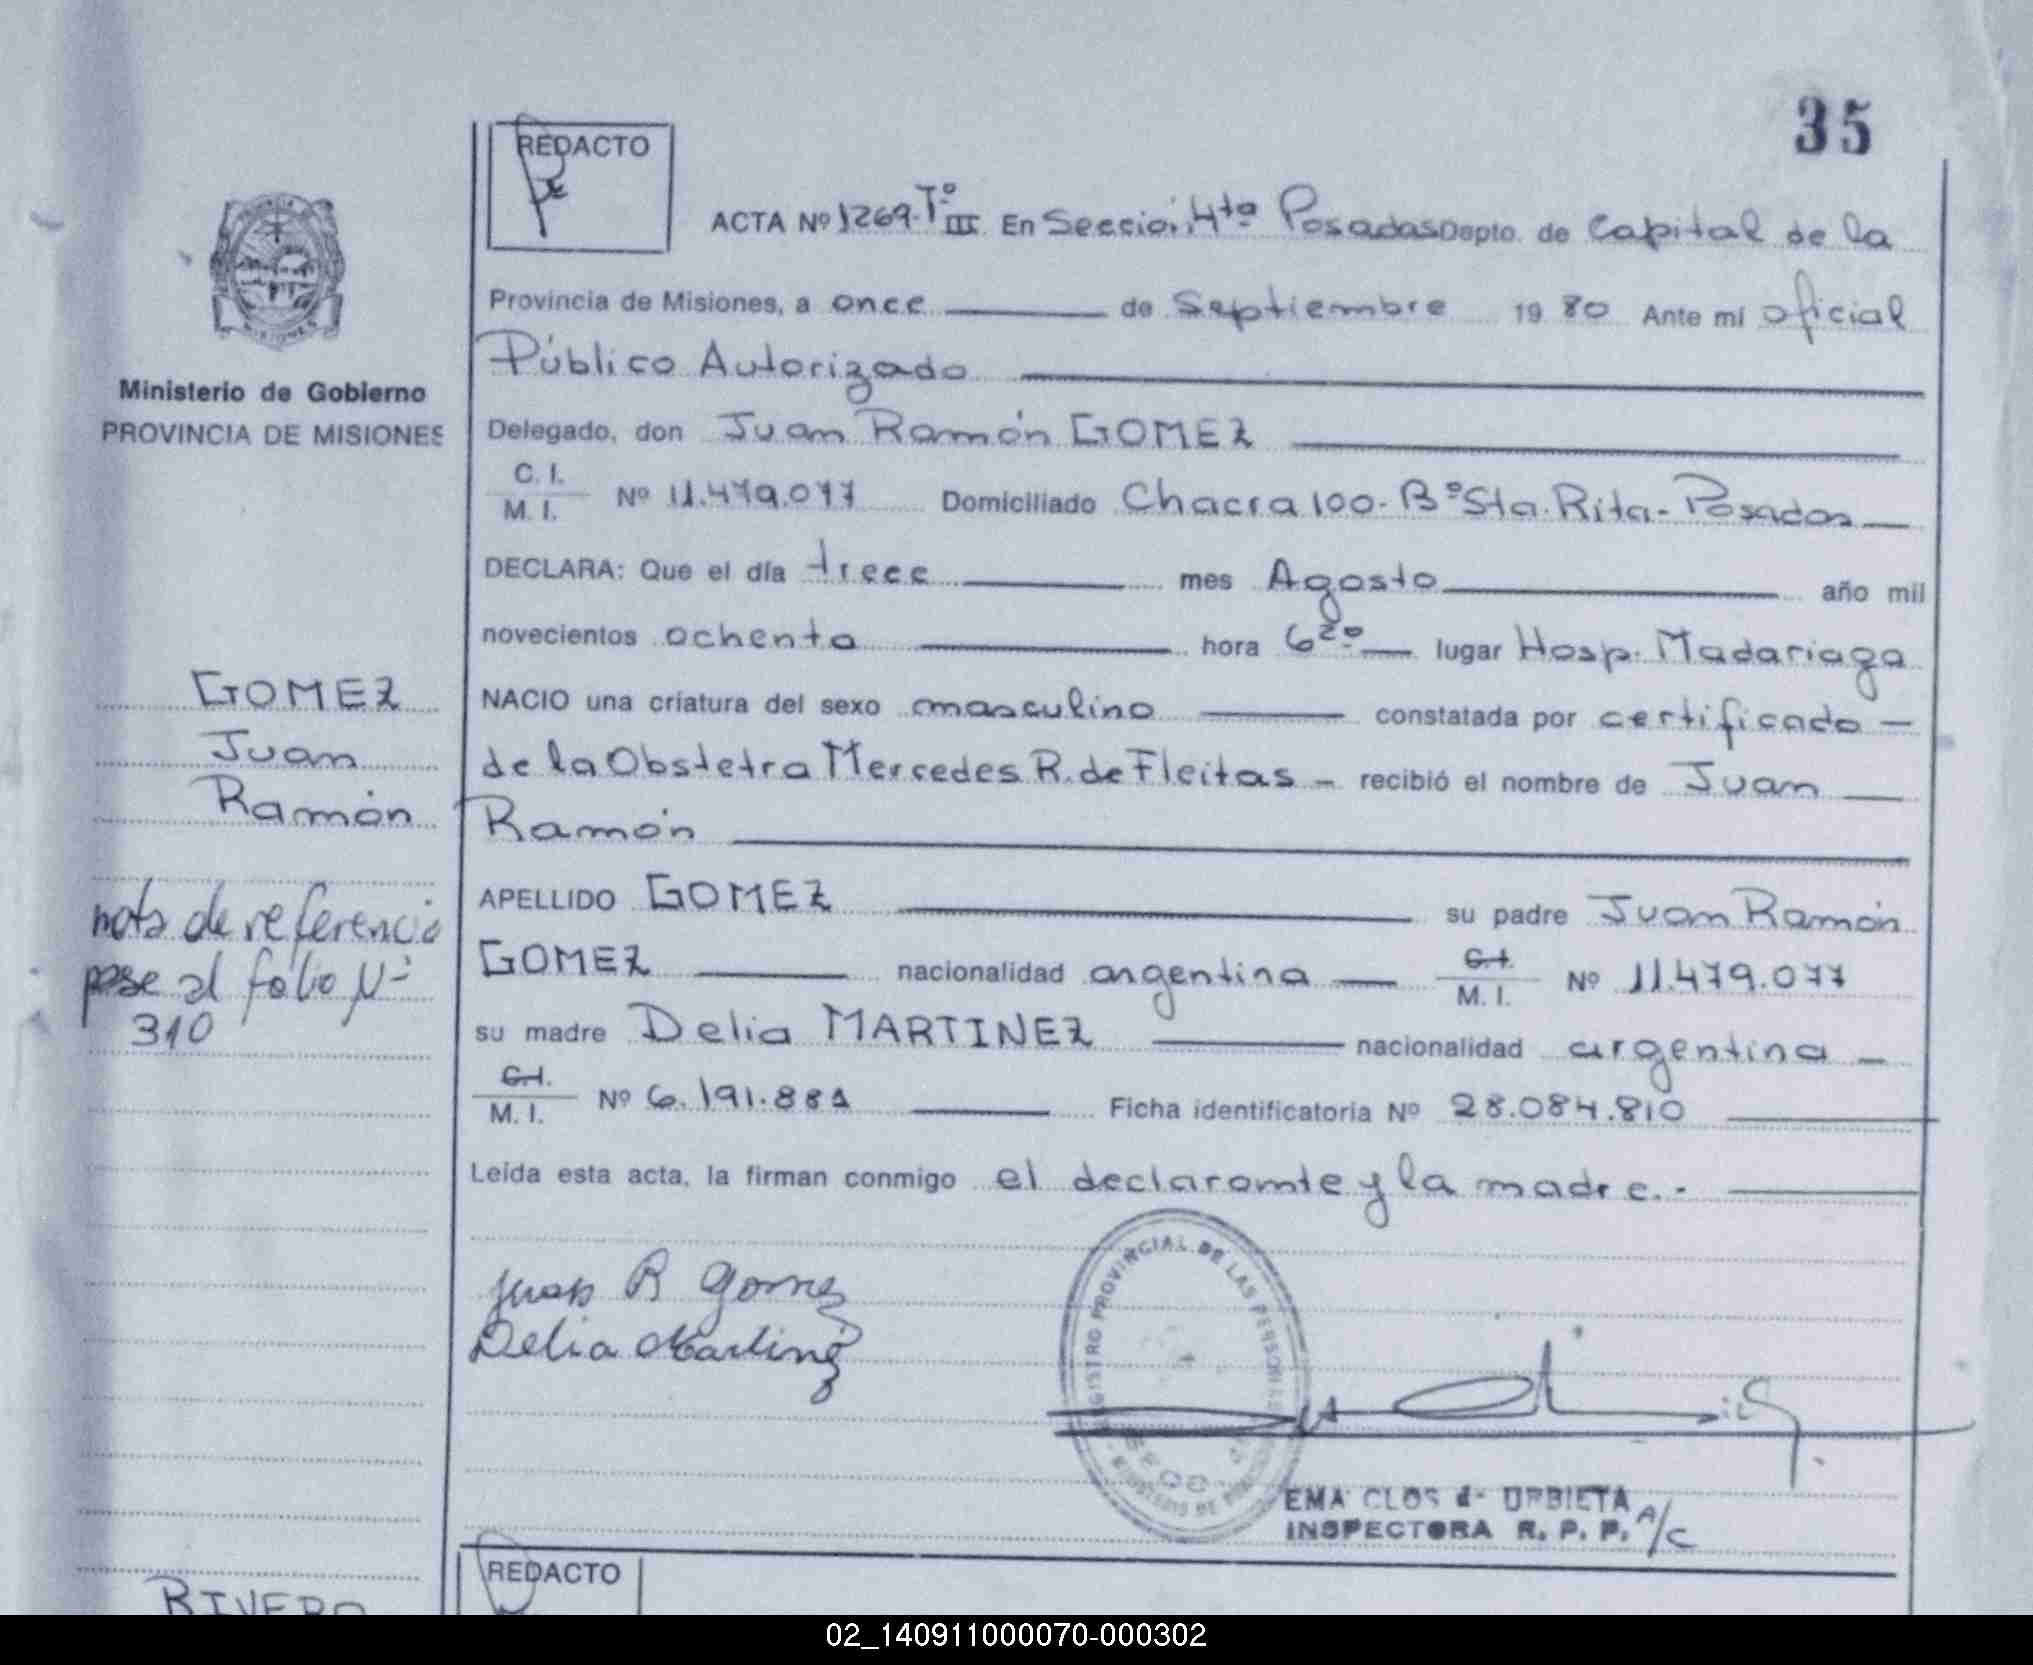 35
REDACTO
ACTA Nº 1269-Tº III En Sección 4ta Posadas Dapto. de Capital de la
Provincia de Misiones, a once de Septiembre 19 80 Ante mí oficial
Público Autorizado
Ministerio de Gobierno
PROVINCIA DE MISIONES
Delegado, don Juan Ramón GOMEZ
C. I.
M. I. Nº 11.479.077 Domiciliado Chacra 100-Bº Sta. Rita-Posadas
DECLARA: Que el día trece mes Agosto año mil
novecientos ochenta hora 6 20 lugar Hosp. Madariaga
GOMEZ
Juan
Ramón
NACIO una criatura del sexo masculino constatada por certificado
de la Obstetra Mercedes R. de Fleitas - recibió el nombre de Juan
Ramón
nota de referencia
pase al folio Nº
310
APELLIDO GOMEZ su padre Juan Ramón
GOMEZ nacionalidad argentina C.I.
M. I. Nº 11.479.077
su madre Delia MARTINEZ nacionalidad argentina
C.I.
M. I. Nº 6.191.881 Ficha identificatoria Nº 28.084.810
Leída esta acta, la firman conmigo el declarante y la madre.-
Juan R Gomez
Delia Martinez
REGISTRO PROVINCIAL DE LAS PERSONAS
EMA CLOS de URBIETA
INSPECTORA R. P. P. A/C
REDACTO
RIVERO
02_140911000070-000302